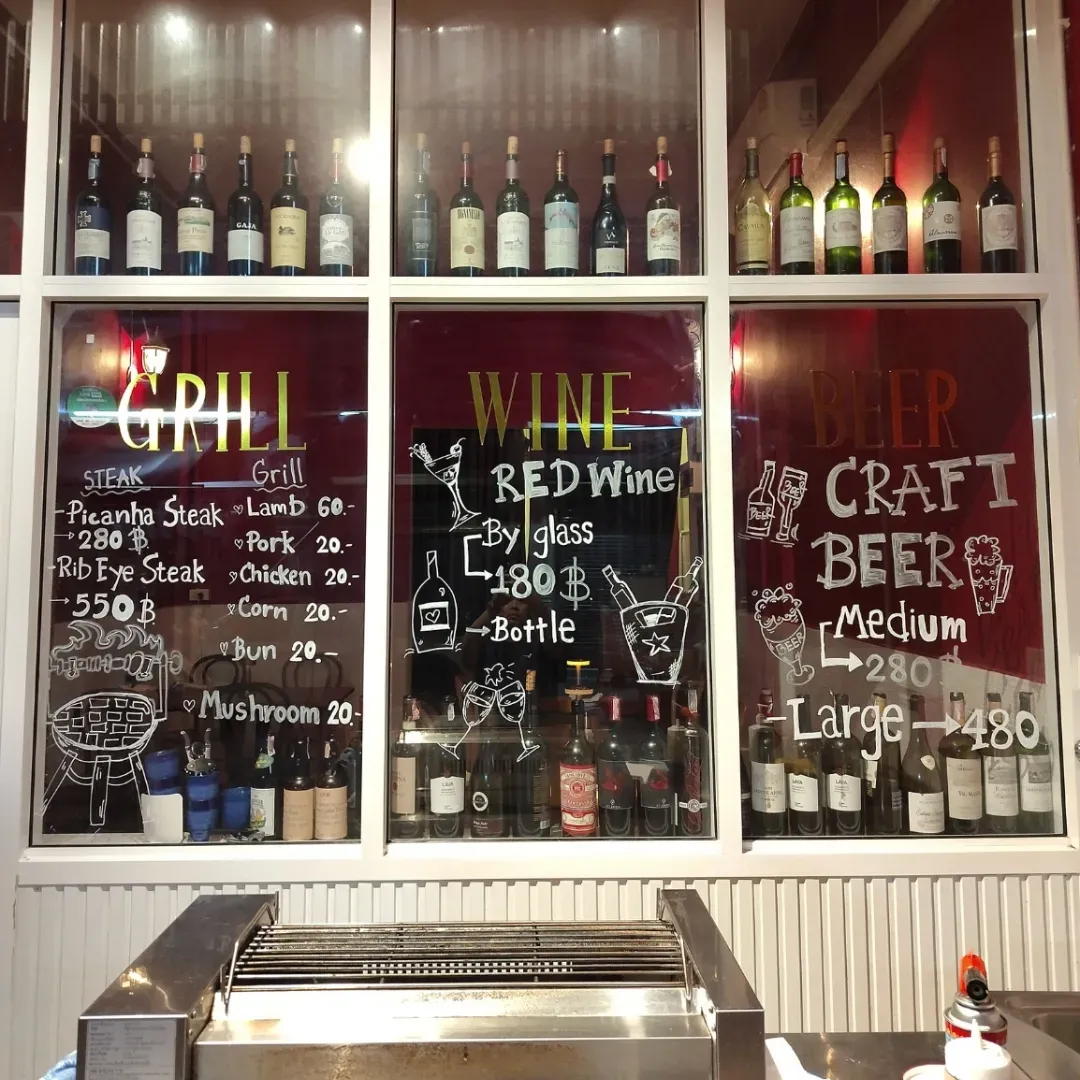 GRILL
STEAK
Picanha Steak
280 ฿
Rib Eye Steak
550 ฿
Grill
Lamb 60.-
Pork 20.-
Chicken 20.-
Corn 20.-
Bun 20.-
Mushroom 20.-
WINE
RED Wine
By glass
180 ฿
Bottle
BEER
CRAFT
BEER
Medium
280 ฿
Large 480
BEER
BEER
GAJA